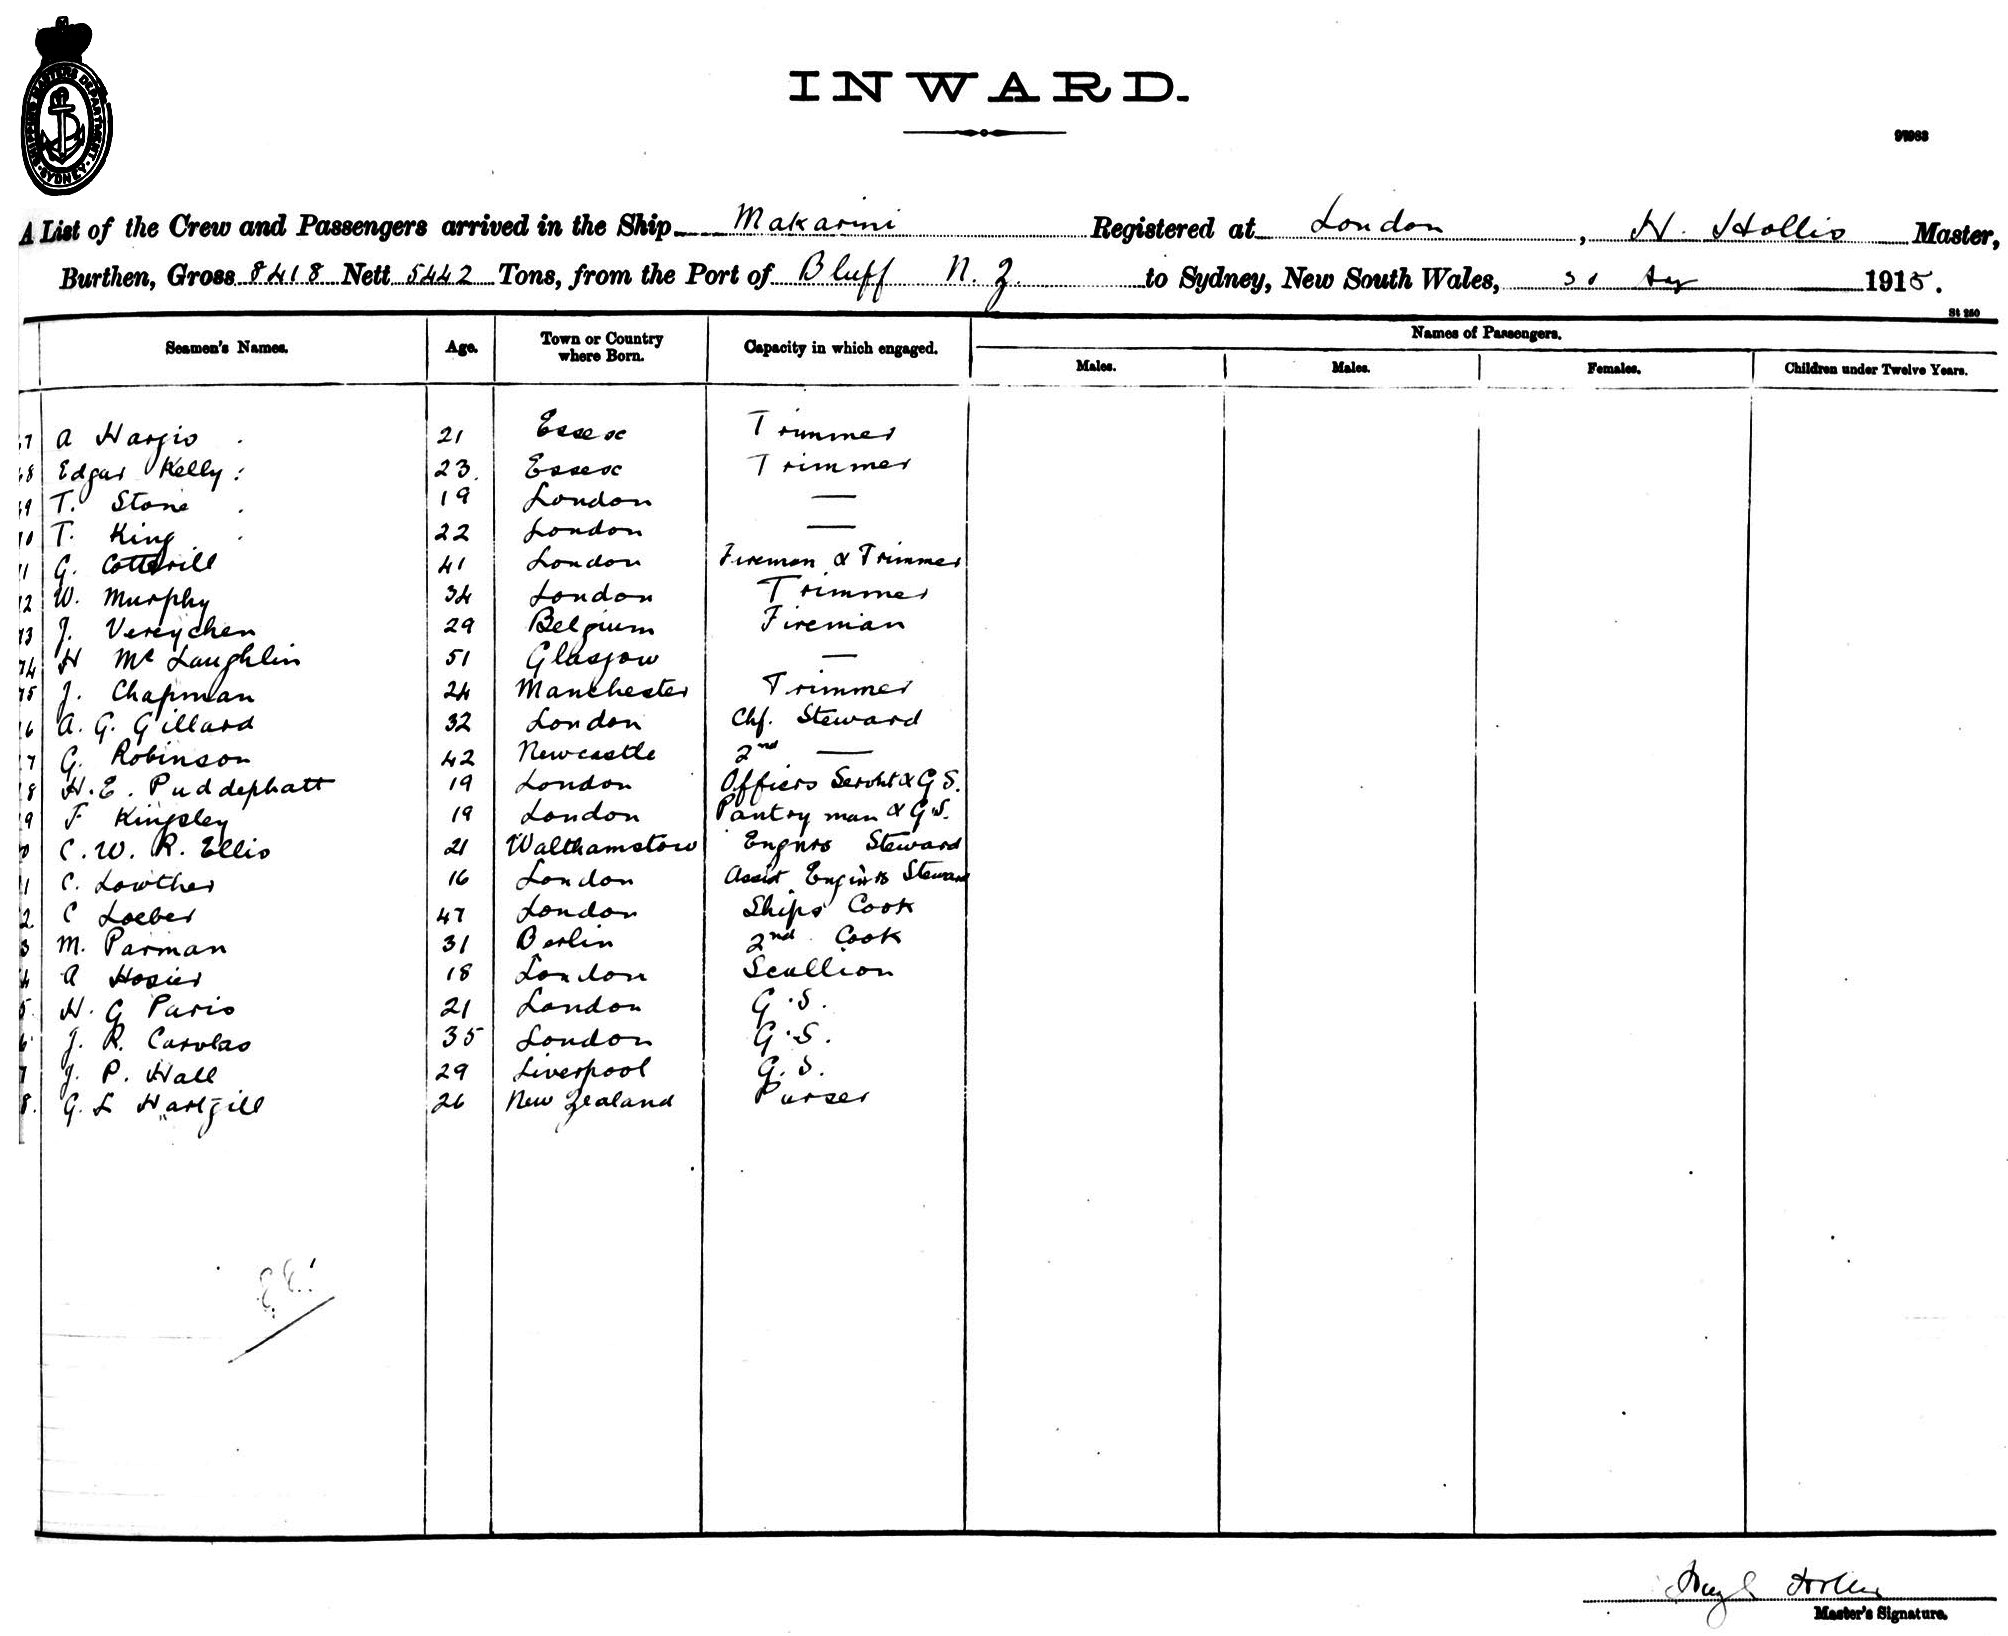 SHIPPING MASTERS DEPARTMENT · SYDNEY ·
INWARD.
A List of the Crew and Passengers arrived in the Ship Makarini Registered at London, H. Hollis Master,
Burthen, Gross 8418 Nett 5442 Tons, from the Port of Bluff N. Z. to Sydney, New South Wales, 1915.
St 250
Seamen's Names. Age. Town or Country where Born. Capacity in which engaged. Names of Passengers.
Males. Males. Females. Children under Twelve Years.
A 21 Essex Trimmer
Edgar Kelly 23. Essex Trimmer
T. Stone 19 London —
T. King 22 London —
G. Cotterill 41 London Fireman & Trimmer
W. Murphy 34 London Trimmer
J. Vereychen 29 Belgium Fireman
H McLaughlin 51 Glasgow —
J. Chapman 24 Manchester Trimmer
A. G. Gillard 32 London Chf. Steward
G. Robinson 42 Newcastle 2nd —
H. E. Puddephatt 19 London Officers Servnt & G S.
F Kingsley 19 London Pantry man & G S.
C. W. R. Ellis 21 Walthamstow Engnrs Steward
C. Lowther 16 London Assist Enginrs Steward
C Loeber 47 London Ships Cook
M. Parman 31 Berlin 2nd Cook
A Hosier 18 London Scullion
H. G Paris 21 London G. S.
J. R. Carolas 35 London G. S.
J. P. Hall 29 Liverpool G. S.
G. L Hartgill 26 New Zealand Purser
Master's Signature.